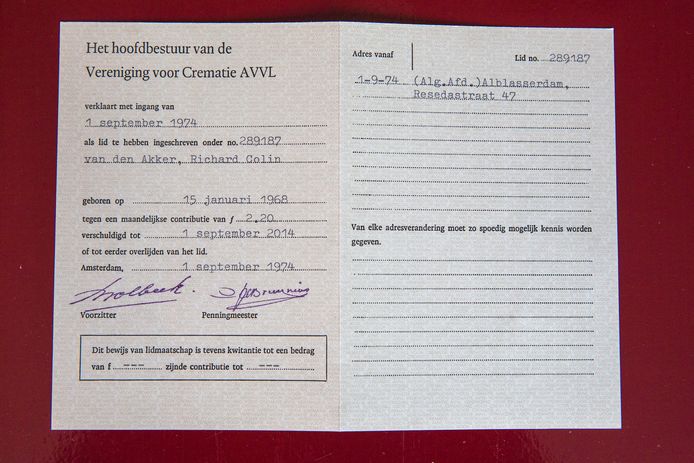 Het hoofdbestuur van de
Vereniging voor Crematie AVVL
verklaart met ingang van
1 september 1974
als lid te hebben ingeschreven onder no. 289187
van den Akker, Richard Colin
geboren op 15 januari 1968
tegen een maandelijkse contributie van ƒ 2.20
verschuldigd tot 1 september 2014
of tot eerder overlijden van het lid.
Amsterdam, 1 september 1974
Voorzitter Penningmeester
Dit bewijs van lidmaatschap is tevens kwitantie tot een bedrag
van f --- zijnde contributie tot ---
Adres vanaf Lid no. 289187
1-9-74 (Alg.Afd.)Alblasserdam,
Resedastraat 47
Van elke adresverandering moet zo spoedig mogelijk kennis worden
gegeven.